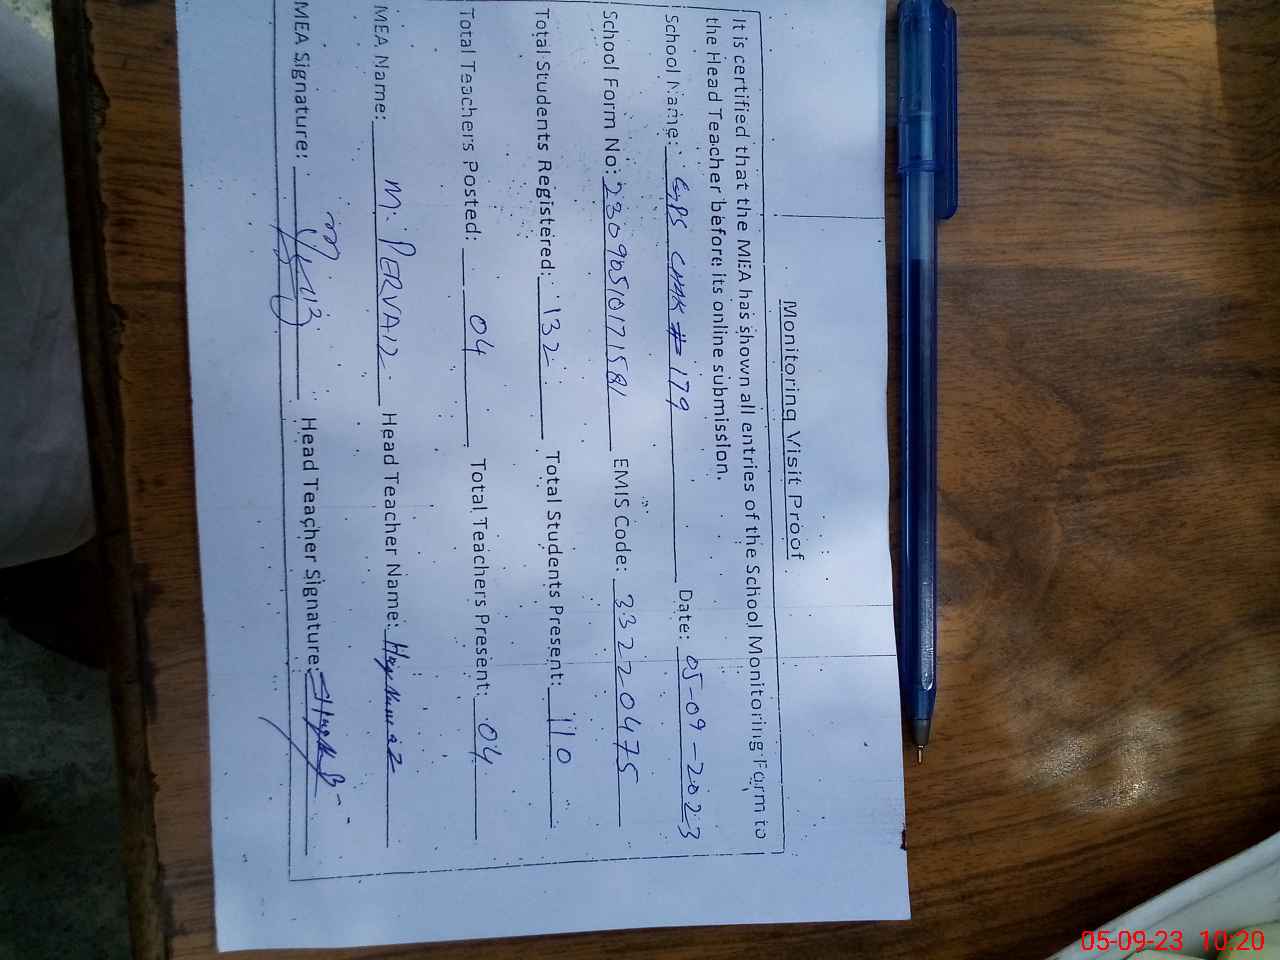 Monitoring Visit Proof
It is certified that the MEA has shown all entries of the School Monitoring Form to
the Head Teacher before its online submission.
School Name: GPS CHAK # 179 Date: 05-09-2023
School Form No: 23090510171581 EMIS Code: 33220475
Total Students Registered: 132 Total Students Present: 110
Total Teachers Posted: 04 Total Teachers Present: 04
MEA Name: M. PERVAIZ Head Teacher Name:
MEA Signature: Head Teacher Signature:
05-09-23 10:20